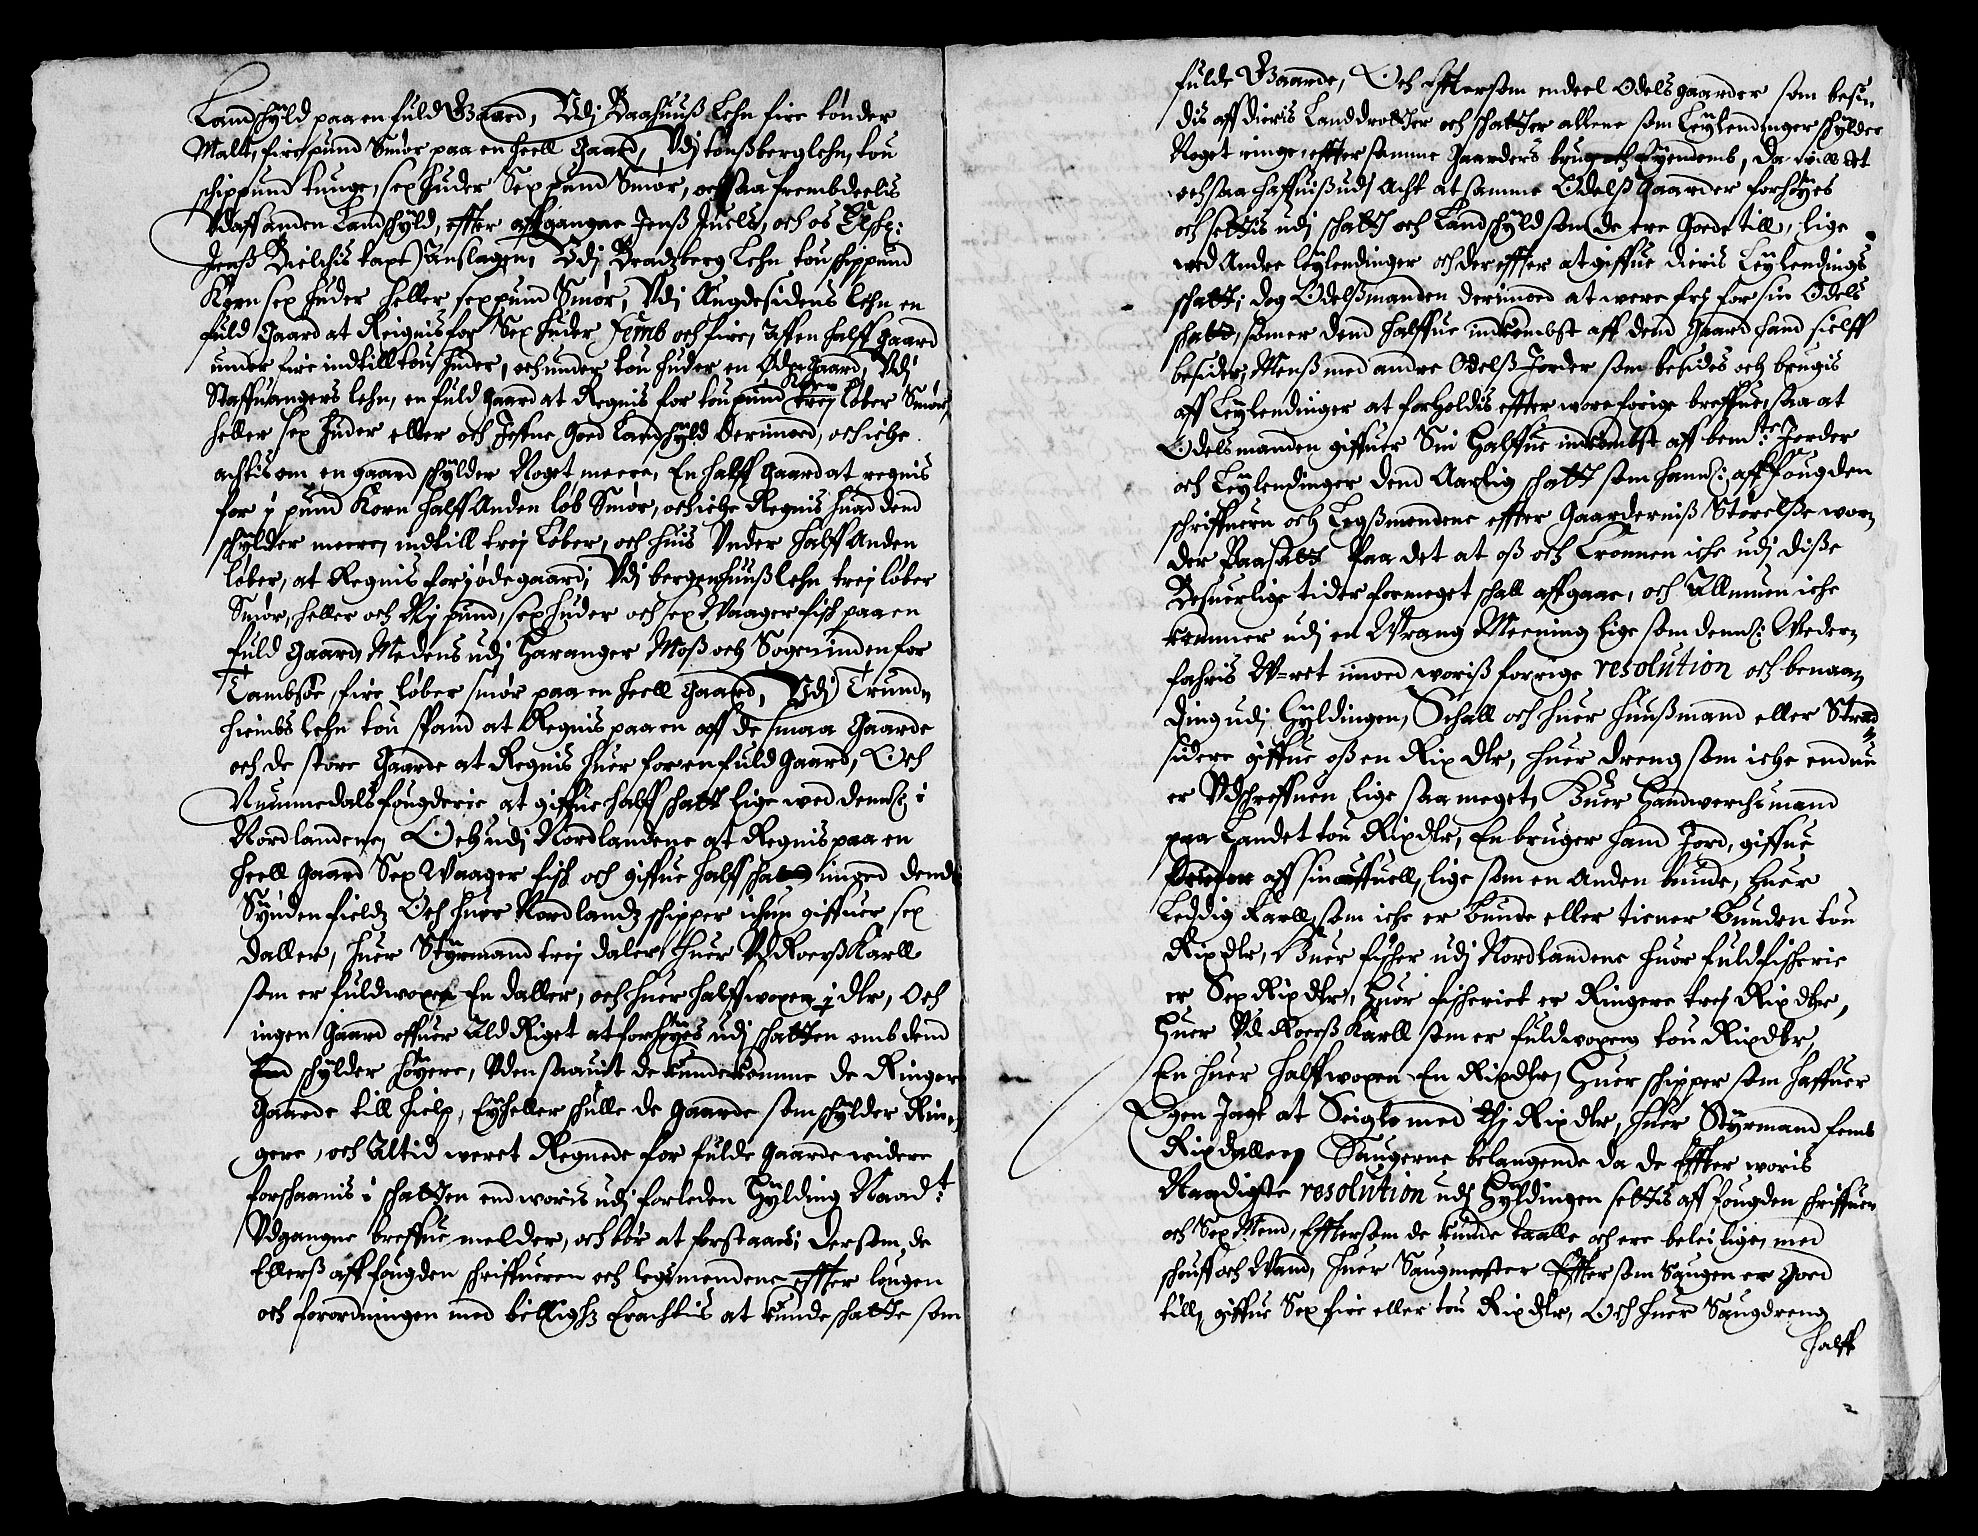 Landschÿld paa en fuld Gaard, Vdj Baahuuß Lehn fire tønder
Malt, fire pund Smør paa en heell Gaard, Vdj tonßberg lehn, tou
schippund tunge, sex huder Sex pund Smør, och saa frembdeelis
Vdaff anden Landschÿld, effter affgangne Jenß Juels, och os Elsche:
Jenß Bielchis taxt Anslagen, Vdj Bradtzberg Lehn tou schippund
Korn sex huder heller sex pund Smør, Vdj Augdesidens lehn en
fuld Gaard at Reignis for Sex huder femb och fire, Aff en halff Gaard
under fire indtill tou huder, och under tou huder en Øde Gaard, Vdj
Staffuangers lehn, en fuld Gaard at Regnis for tou pund Korn trej løber Smør,
heller sex huder eller och Jefne Goed Landschÿld derimod, och iche
achtis om en gaard schÿlder Noget meere, En halff Gaard at regnis
for j pund Korn halff Anden løb Smør, och iche Regnis huad dend
schÿlder meere, indtill trej Løber, och huis Vnder halff Anden
løber, at Regnis for j ødegaard, Vdj bergenhuuß lehn trej løber
Smør, heller och pund, sex huder och sex Waager fisch paa en
fuld Gaard, Medens udj Haranger Moß och Sogn inden for
Tambsøe, fire løber smør paa en heell Gaard, Vdj Trund,
hiembs lehn tou spand at Regnis paa en aff de smaa Gaarde
och de store Gaarde at Regnis huer for en fuld Gaard, Och
Nummedals fougderie at giffue halff schatt lige wed dennom i
Nordlandene, Och udj Nordlandene at Regnis paa en
heell Gaard Sex Waager fisch och giffue halff schatt imod dend
Sÿnden fieldz Och huer Nordlandz schipper ichun giffuer sex
daller, huer Stÿrmand trej daler, huer VdRoerß Karll
som er fuldwoxen En daller, och huer halff woxen j dlr, Och
ingen Gaard offuer Ald Riget at forhøÿes udj schatten omb dend
end schÿlder høÿere, Vden saauit de kunde komme de Ringer
Gaarde till hielp, Eÿ heller schulle de Gaarde som schÿlder Rin,
gere, och Altid weret Regnede for fulde Gaarde widere
forschaanis i schatten end woris udj forleden Hÿlding Naad:
Vdgangne breffue melder, och bør at forstaaes, dersom de
Ellerß aff fougden schriffueren och legsmendene effter lougen
och forordningen med billighz Erachtis at kunde schatte som
fulde Gaarde, Och Efftersom endeel Odelsgaarder som besin,
dis aff dieris Landdrotter och schatter allene som Leÿlendinger schÿlder
Noget ringe effter samme Gaarders brug och Eÿendomb, da will det
och saa haffuis udj Acht at samme Odelß Gaarder forhøÿes
och settis udj schatt och Landschÿld som de ere Goede till, lige
wed Andre leÿlendinger och der effter at giffue dieris Leÿlendings
schatt, dog Odelßmanden derimod at were frj for sin Odels
schatt, som er dend halffue indkombst aff dend Gaard hand sielff
besider, Menß med andre Odelß Jorder som besides och brugis
aff Leÿlendinger at forholdis effter wore forige breffue, saa at
Odelsmanden giffuer Sin Halffue indkombst aff bemte Jorder
och Leÿlendinger dend Aarlig schatt som hannom aff fougden
schriffuern och Legßmendene effter Gaardernis Størelse wor,
der Paasatt Paa det at oß och Cronnen iche udj diße
Besuerlige tider for meget schall affgaae, och Allmuen iche
kommer udj en Wrang Meening lige som dennom Weder,
fahris W=ret imod woriß forrige resolution och benaa,
ding udj Hÿldingen, Schall och huer huußmand eller Strand
sidere giffue oß en Rix Dlr, huer dreng som iche endnu
er Vdschreffuen lige saa meget, Huer Handwerchsmand
paa Landet tou Rixdlr, En bruger hand Jord, giffue
aff sin lige som en Anden bunde, Huer
Leddig Karll som iche er bunde eller tiener bunden tou
Rixdlr, Huer fischer udj Nordlandene huor fuld fischerie
er Sex Rixdlr, Huor fischeriet er Ringere trej Rixdlr,
Huer VdRoerß Karll som er fuldwoxen tou Rixdlr,
En huer halffwoxen En Rixdlr, Huer schipper som haffuer
Egen Jagt at Seigle med Rixdlr, huer Stÿrmand femb
Rixdaller, Saugerne belangende da de Effter woris
Naadigste resolution udj Hÿldingen settis aff fougden schriffuer
och Sex Mend, Effter som de kunde taalle och ere beleilige, med
schouff och Wand, huer Saugmester Effter som Saugen er Goed
till, giffue Sex fire eller tou Rixdlr, Och huer Saugdreng
halff